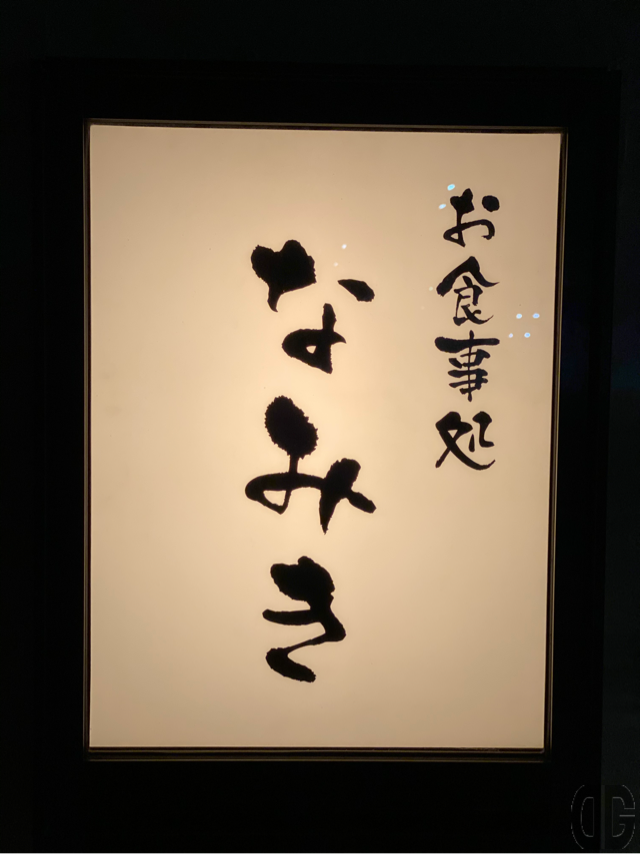 お食事処
なみき